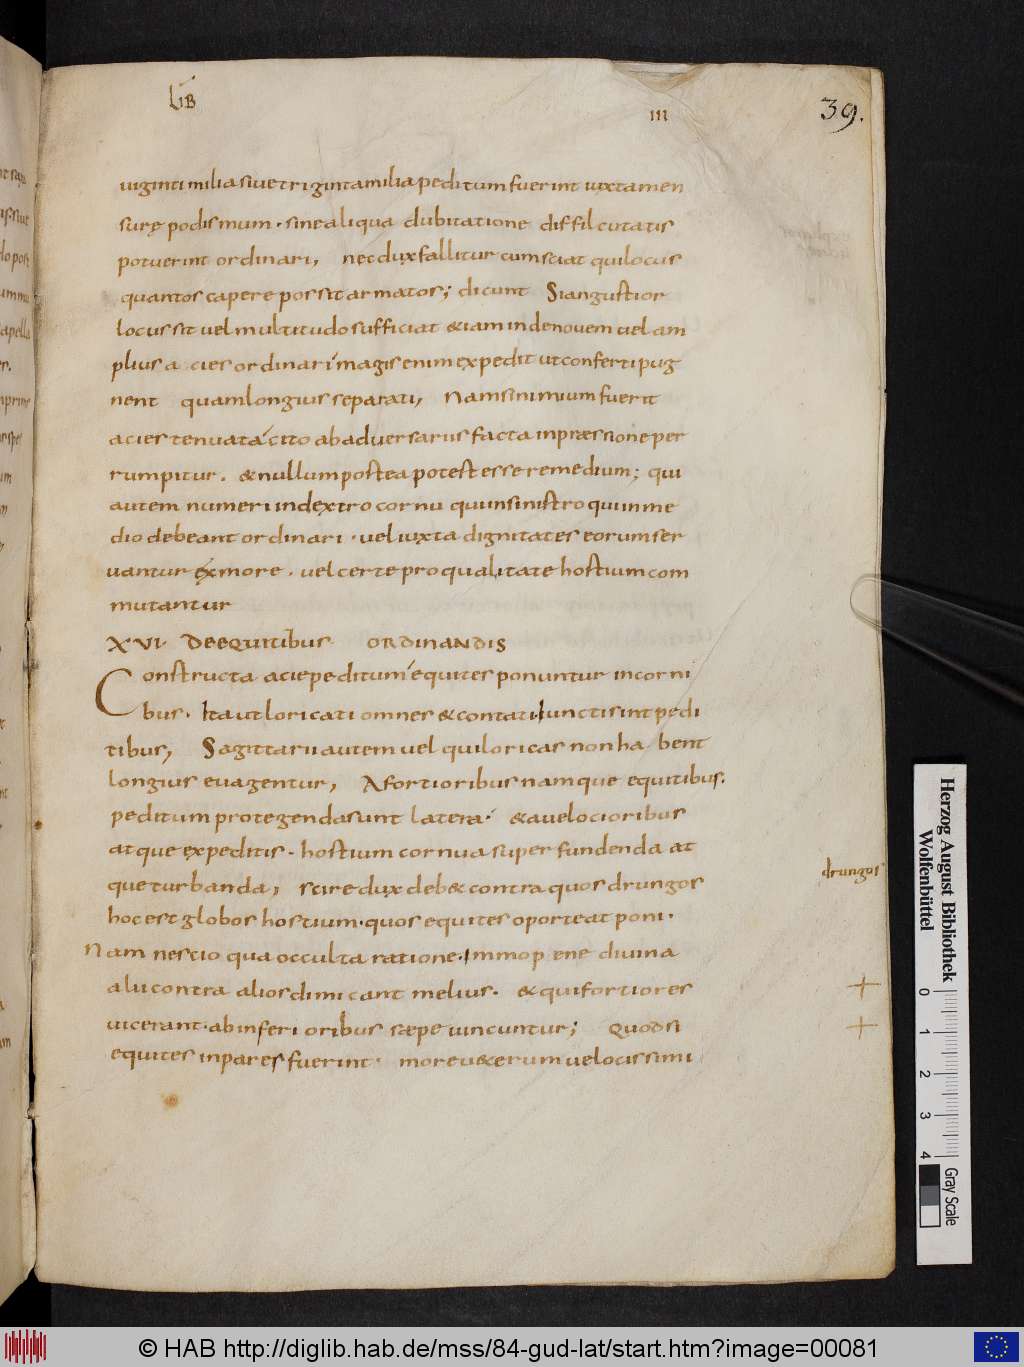 LIB III 39.
uiginti milia siue triginta milia peditum fuerint iuxta men
surę podismum · sine aliqua dubitatione diffilcutatis
potuerint ordinari, nec dux fallitur cum sciat qui locus
quantos capere possit armatos; dicunt Si angustior
locus sit uel multitudo sufficiat &iam in denouem uel am
plius a cies ordinari magis enim expedit ut conferti pug
nent quam longius separati, Nam si nimium fuerit
acies tenuata cito ab aduersariis facta inpræssione per
rumpitur. & nullum postea potest esse remedium; qui
autem numeri in dextro cornu qui in sinistro qui in me
dio debeant ordinari · uel iuxta dignitates eorum ser
uantur ex more. uel certe pro qualitate hostium com
mutantur
XVI. DE EQUITIBUS ORDINANDIS
Constructa acie peditum equites ponuntur in corni
bus. Ita ut loricati omnes & contati Iuncti sint pedi
tibus, Sagittarii autem uel qui loricas non ha bent
longius euagentur, A fortioribus namque equitibus.
peditum protegenda sunt latera· & a uelocioribus
atque expeditis. hostium cornua superfundenda at
que turbanda, scire dux deb& contra quos drungos
drungos
hoc est globos hostium·quos equites oporteat poni.
Nam nescio qua occulta ratione·Immo pene diuina
alii contra alios dimicant melius. & qui fortiores
uicerant·ab inferioribus sæpe uincuntur; Quodsi
equites inpares fuerint· more u&erum uelocissimi
Herzog August Bibliothek
Wolfenbüttel
0 1 2 3 4
Gray Scale
© HAB http://diglib.hab.de/mss/84-gud-lat/start.htm?image=00081